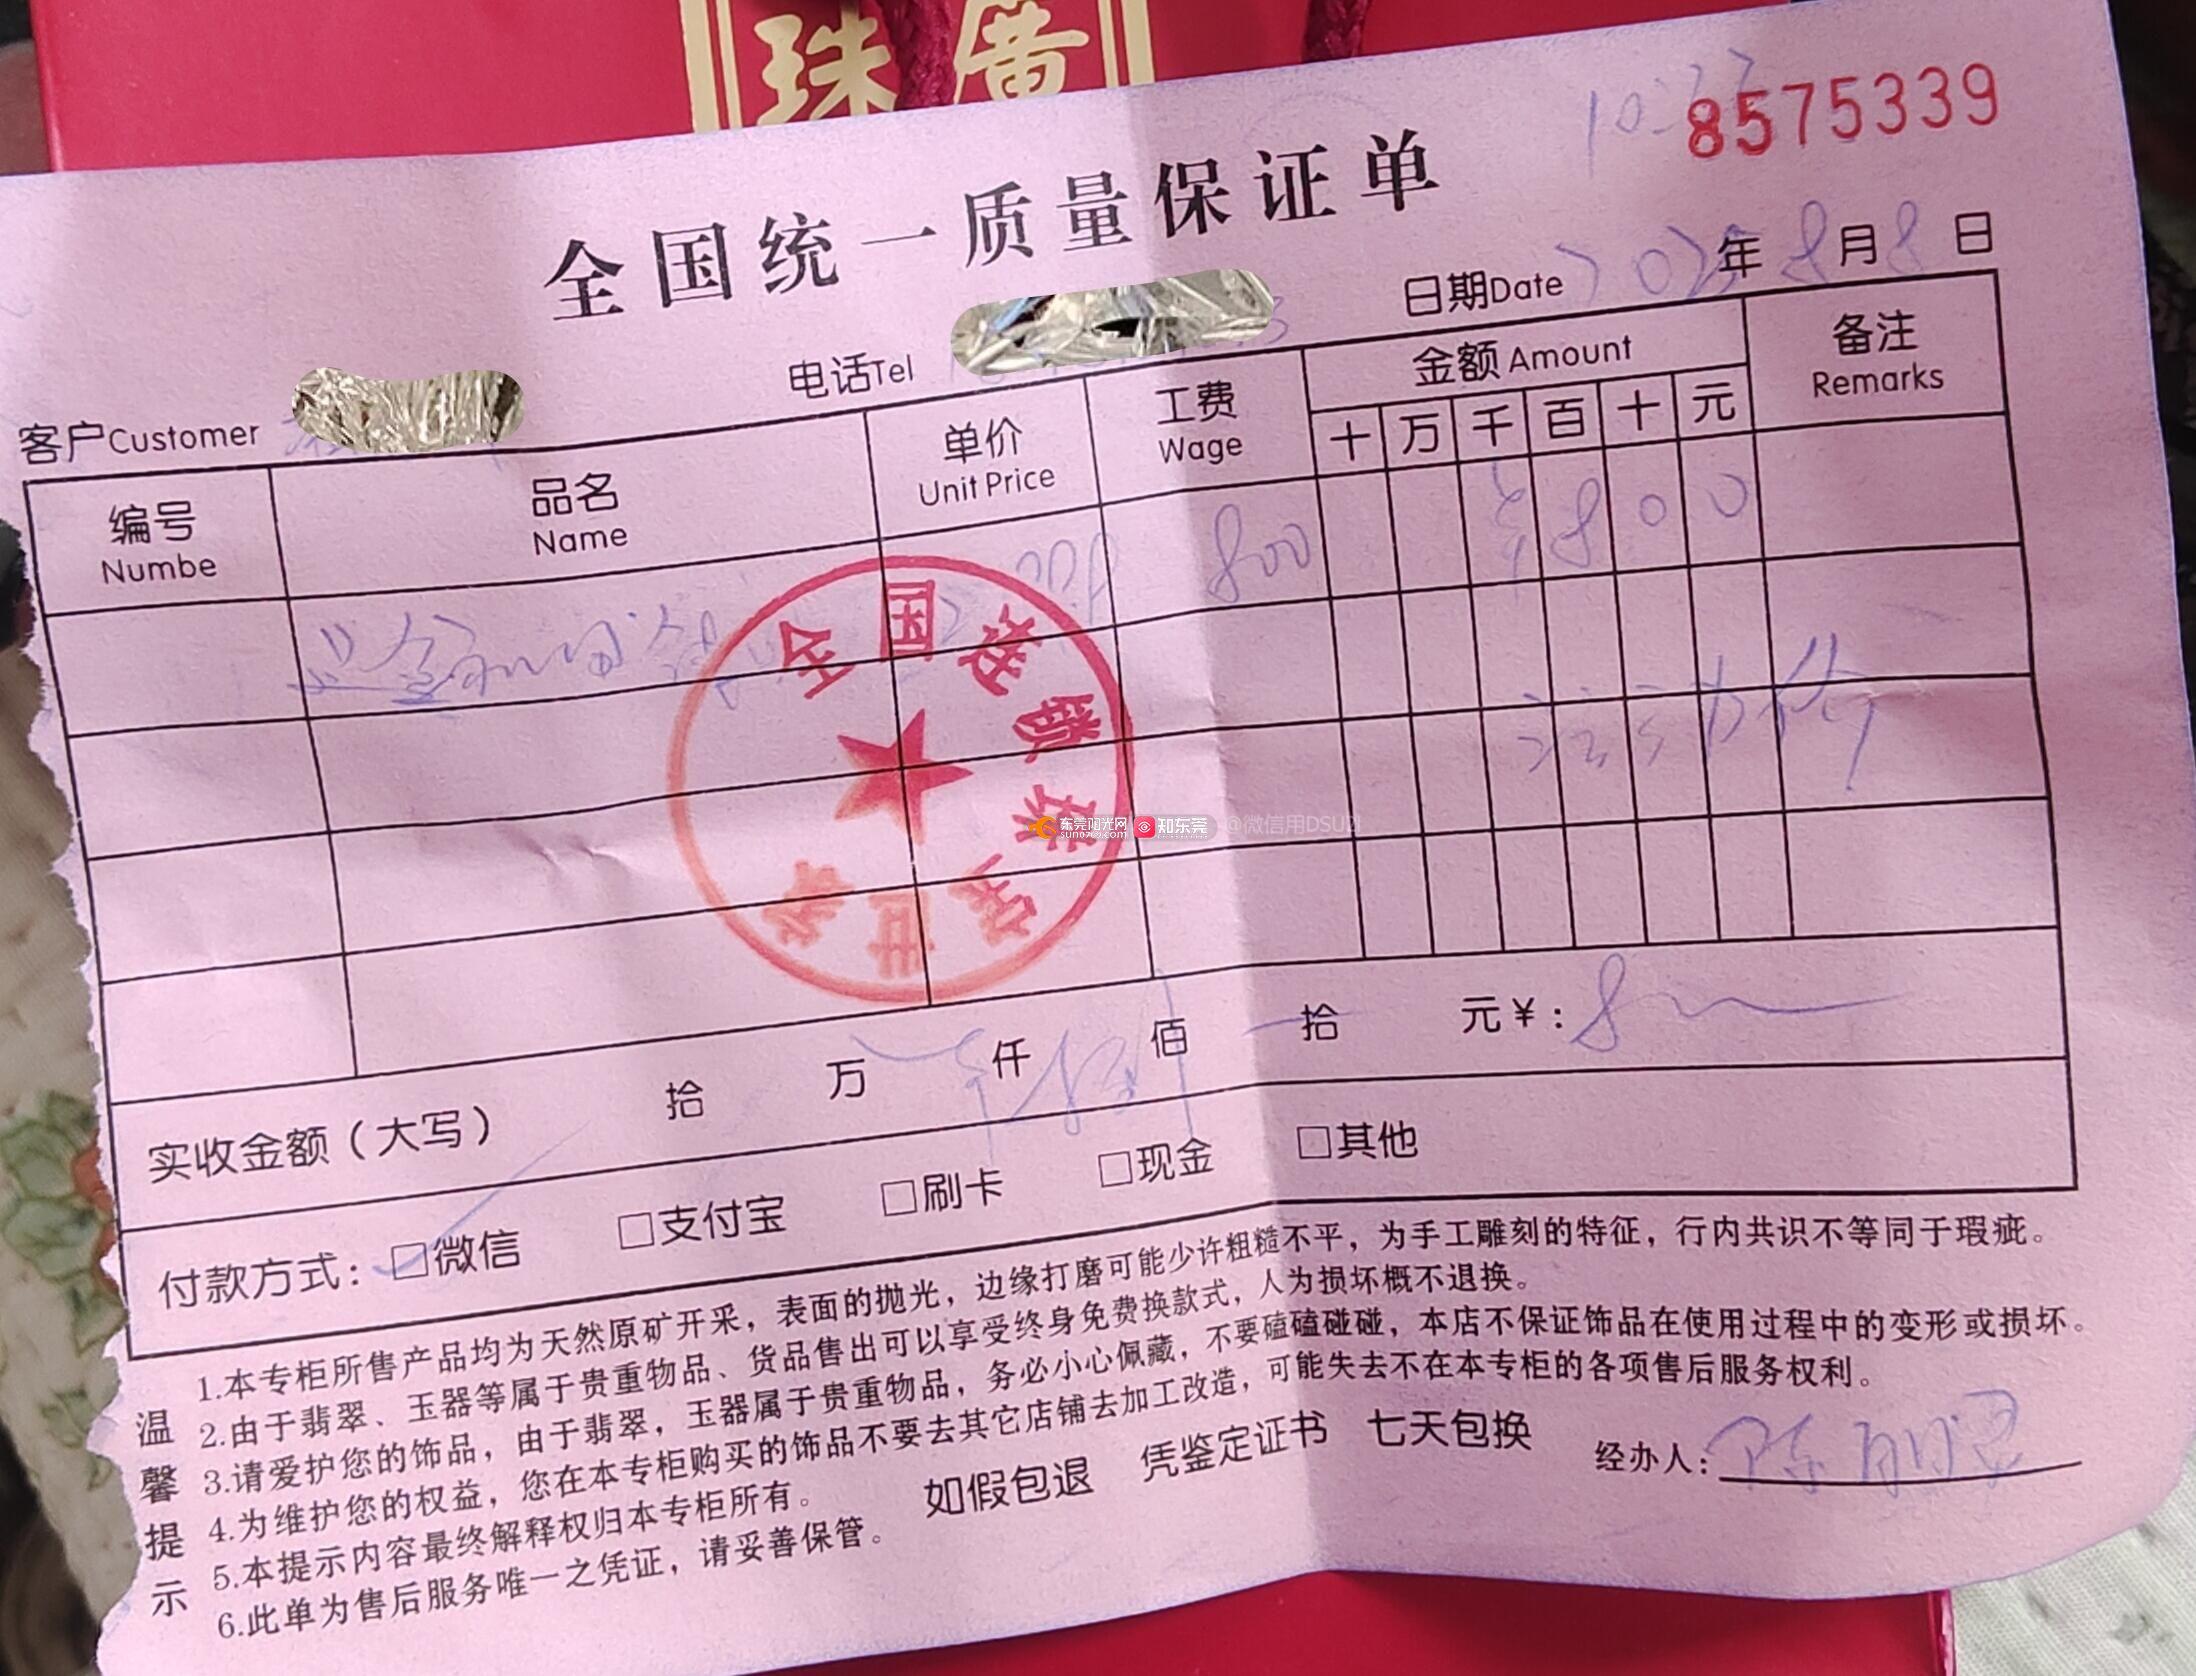 珠 廣
8575339
全国统一质量保证单
日期Date 2023年8月8日
客户Customer 电话Tel
编号 品名 单价 工费 金额 Amount 备注
Numbe Name Unit Price Wage 十 万 千 百 十 元 Remarks
800 8 0 0
活动价
全国连锁珠宝世家
东莞阳光网 知东莞 @微信用DSU2l
sun0769.com
实收金额（大写） 拾 万 仟 佰 拾 元￥：
付款方式： □微信 □支付宝 □刷卡 □现金 □其他
温馨提示
1.本专柜所售产品均为天然原矿开采，表面的抛光，边缘打磨可能少许粗糙不平，为手工雕刻的特征，行内共识不等同于瑕疵。
2.由于翡翠、玉器等属于贵重物品、货品售出可以享受终身免费换款式，人为损坏概不退换。
3.请爱护您的饰品，由于翡翠，玉器属于贵重物品，务必小心佩藏，不要磕磕碰碰，本店不保证饰品在使用过程中的变形或损坏。
4.为维护您的权益，您在本专柜购买的饰品不要去其它店铺去加工改造，可能失去不在本专柜的各项售后服务权利。
5.本提示内容最终解释权归本专柜所有。
6.此单为售后服务唯一之凭证，请妥善保管。
如假包退 凭鉴定证书 七天包换
经办人：陈